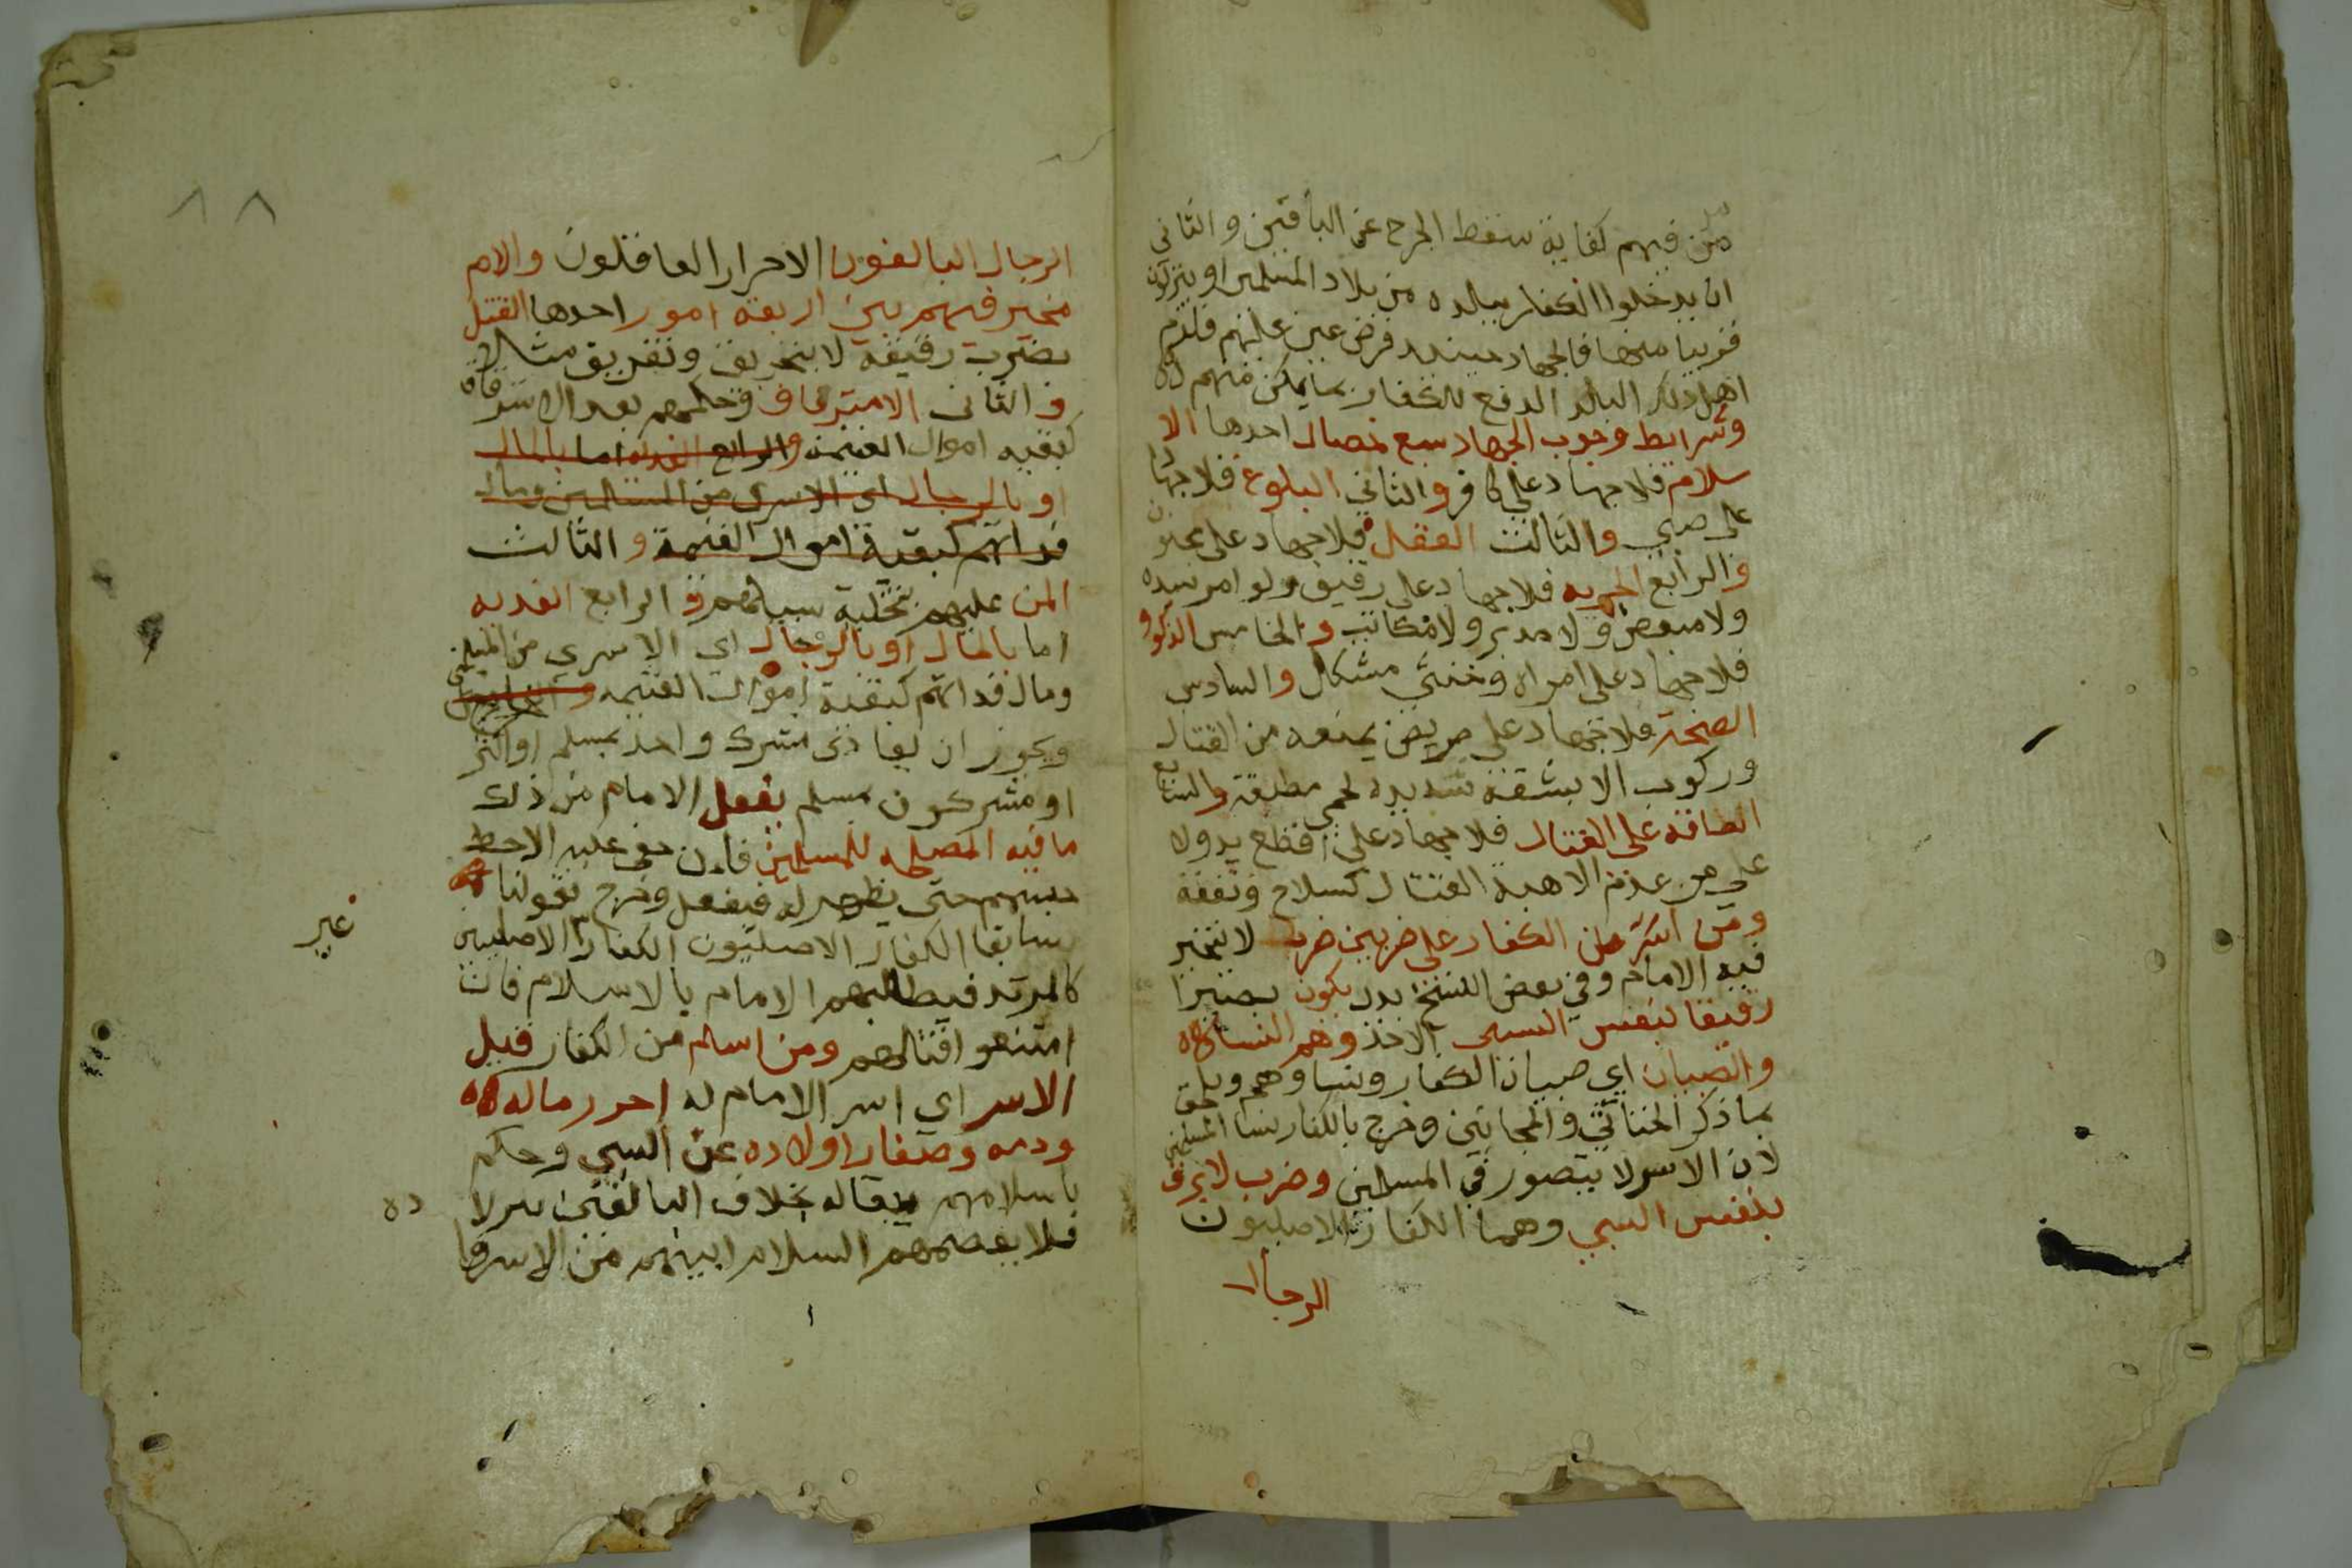 من فيهم كفاية سقط الحرج عن الباقين والثاني
ان يدخلوا الكفار ببلده من بلاد المسلمين او ينزلون
قريبا منها فالجهاد حينيد فرض عين عليهم فلزم
اهل ذلك البلد الدفع للكفار بما يمكن منهم
وشرايط وجوب الجهاد سبع خصال احدها الا
سلام فلا جهاد على كافر والثاني البلوغ فلا جهاد
على صبي والثالث العقل فلا جهاد على مجنون
والرابع الحريه فلا جهاد على رقيق ولو امر سيده
ولا مبعض ولا مدبر ولا مكاتب والخامس الذكوره
فلا جهاد على امراه وخنثي مشكل والسادس
الصحة فلا جهاد على مريض يمنعه من القتال
وركوب الا بشقة شديده لحمى مطبقة والسابع
الطاقه على القتال فلا جهاد على اقطع يد ولا
على من عدم الاهبة القتال كسلاح ونفقة
ومن اسر من الكفار على ضربين ضرب لا تخير
فيه الامام وفي بعض النسخ بدل يكون يصير
رقيقا بنفس السبى الاخذ وهم النسا
والصبيان اي صبيان الكفار ونساوهم ويلحق
بما ذكر الخناثي والمجانين وخرج بالكفار نسا المسلمين
لان الاسر لا يتصور في المسلمين وضرب لا يرق
بنفس السبي وهما الكفار الاصليون
الرجال
٨٨
الرجال البالغون الاحرار العاقلون والامام
مخير فيهم بين اربعه امور احدها القتل
بضرب رقبته لا بتحريق وتغريق مثالا
والثانى الاسترقاق وحكمهم بعد الاسترقاق
كبقيه اموال الغنيمه والرابع الفديه اما بالمال
او بالرجال اى الاسرى من المسلمين ومال
فدايهم كبقية اموال الغنيمة والثالث
المن عليهم بتخلية سبيلهم والرابع الفديه
اما بالمال او بالرجال اي الاسري من المسلمين
ومال فدائهم كبقية اموال الغنيمه
ويجوز ان يفادى مشرك واحد بمسلم او اكثر
او مشركون بمسلم يفعل الامام من ذلك
ما فيه المصلحه للمسلمين فان خفى عليه الاحظ
حبسهم حتى يظهر له فيفعل وخرج بقولنا
سابقا الكفار الاصليون الكفار الاصليين
غير
كالمرتد فيطالبهم الامام بالاسلام فان
امتنعوا قتالهم ومن اسلم من الكفار قبل
الاسر اي اسر الامام له احرز ماله
ودمه وصغار اولاده عن السبي وحكم
باسلامهم يقاله بخلاف البالغين
ده
فلا يعصمهم السلام ابيهم من الاسر